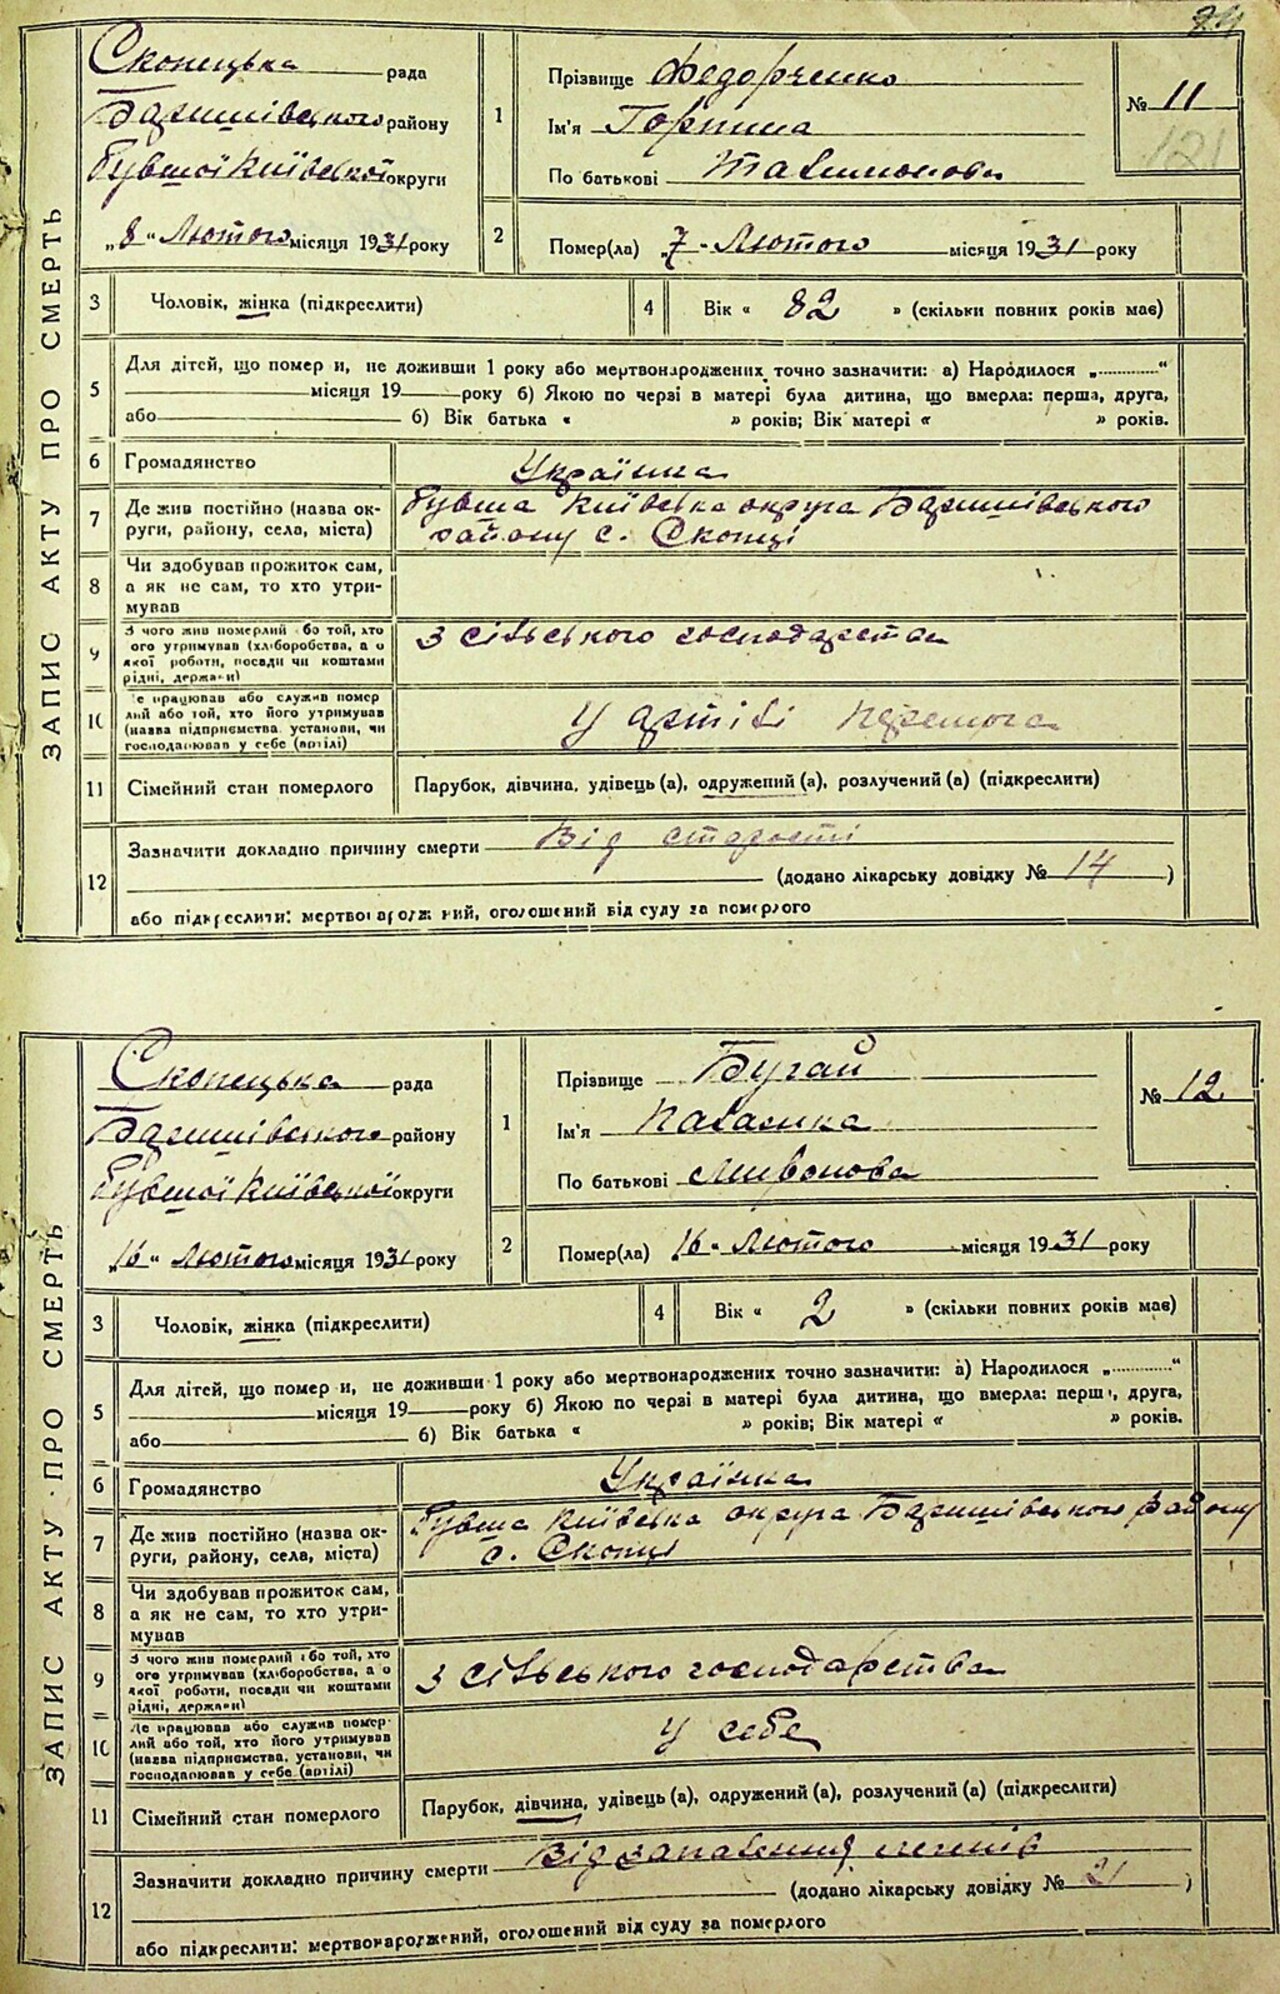 24
ЗАПИС АКТУ ПРО СМЕРТЬ
Скопецька рада
Баришівського району
бувшої Київської округи
„8“ Лютого місяця 1931 року
1
Прізвище Федорченко
Ім'я Горпина
По батькові
№ 11
121
2
Помер(ла) „7“ Лютого місяця 1931 року
3 Чоловік, жінка (підкреслити)
4 Вік « 82 » (скільки повних років має)
5
Для дітей, що помер и, не доживши 1 року або мертвонароджених точно зазначити: а) Народилося „............“
місяця 19 року б) Якою по черзі в матері була дитина, що вмерла: перша, друга,
або б) Вік батька « » років; Вік матері « » років.
6 Громадянство Українка
7
Де жив постійно (назва ок-
руги, району, села, міста)
бувша Київська округа Баришівського
району с. Скопці
8
Чи здобував прожиток сам,
а як не сам, то хто утри-
мував
9
З чого жив померлий або той, хто
його утримував (хліборобства, а о
якої роботи, посади чи коштами
рідні, держави)
З сільського господарства
10
Де працював або служив помер
лий або той, хто його утримував
(назва підприємства, установи, чи
господарював у себе (артілі)
У артілі Перемога
11 Сімейний стан померлого Парубок, дівчина, удівець (а), одружений (а), розлучений (а) (підкреслити)
12
Зазначити докладно причину смерти Від старости
(додано лікарську довідку № 14 )
або підкреслити: мертвонароджений, оголошений від суду за померлого
ЗАПИС АКТУ ПРО СМЕРТЬ
Скопецька рада
Баришівського району
бувшої Київської округи
„16“ Лютого місяця 1931 року
1
Прізвище Бугай
Ім'я Палажка
По батькові Миронова
№ 12
2
Помер(ла) „16“ Лютого місяця 1931 року
3 Чоловік, жінка (підкреслити)
4 Вік « 2 » (скільки повних років має)
5
Для дітей, що помер и, не доживши 1 року або мертвонароджених точно зазначити: а) Народилося „............“
місяця 19 року б) Якою по черзі в матері була дитина, що вмерла: перша, друга,
або б) Вік батька « » років; Вік матері « » років.
6 Громадянство Українка
7
Де жив постійно (назва ок-
руги, району, села, міста)
бувша Київська округа Баришівського району
с. Скопці
8
Чи здобував прожиток сам,
а як не сам, то хто утри-
мував
9
З чого жив померлий або той, хто
його утримував (хліборобства, а о
якої роботи, посади чи коштами
рідні, держави)
З сільського господарства
10
Де працював або служив помер-
лий або той, хто його утримував
(назва підприємства, установи, чи
господарював у себе (артілі)
У себе
11 Сімейний стан померлого Парубок, дівчина, удівець (а), одружений (а), розлучений (а) (підкреслити)
12
Зазначити докладно причину смерти Від запалення легенів
(додано лікарську довідку № 21 )
або підкреслити: мертвонароджений, оголошений від суду за померлого